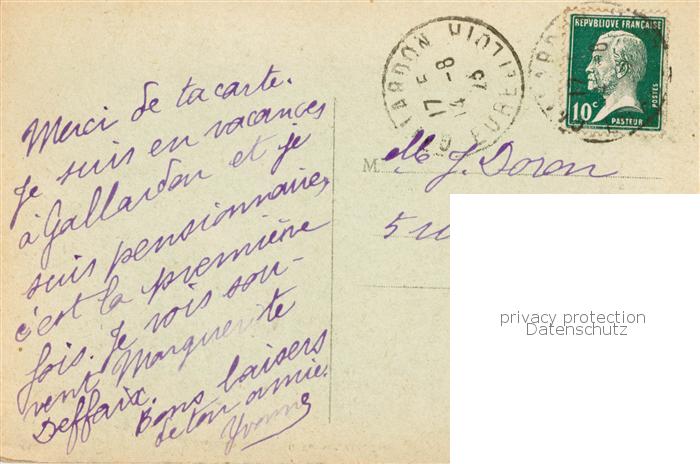 Merci de ta carte.
Je suis en vacances
à Gallardon et je
suis pensionnaire,
c'est la première
fois. Je vois sou-
vent Marguerite
Deffaix.
Bons baisers
de ton amie.
Yvonne
GALLARDON EURE-ET-LOIR
17 5
14 -8
REPVBLIQUE FRANÇAISE
10c
POSTES
PASTEUR
M. M J. Doron
5
privacy protection
Datenschutz